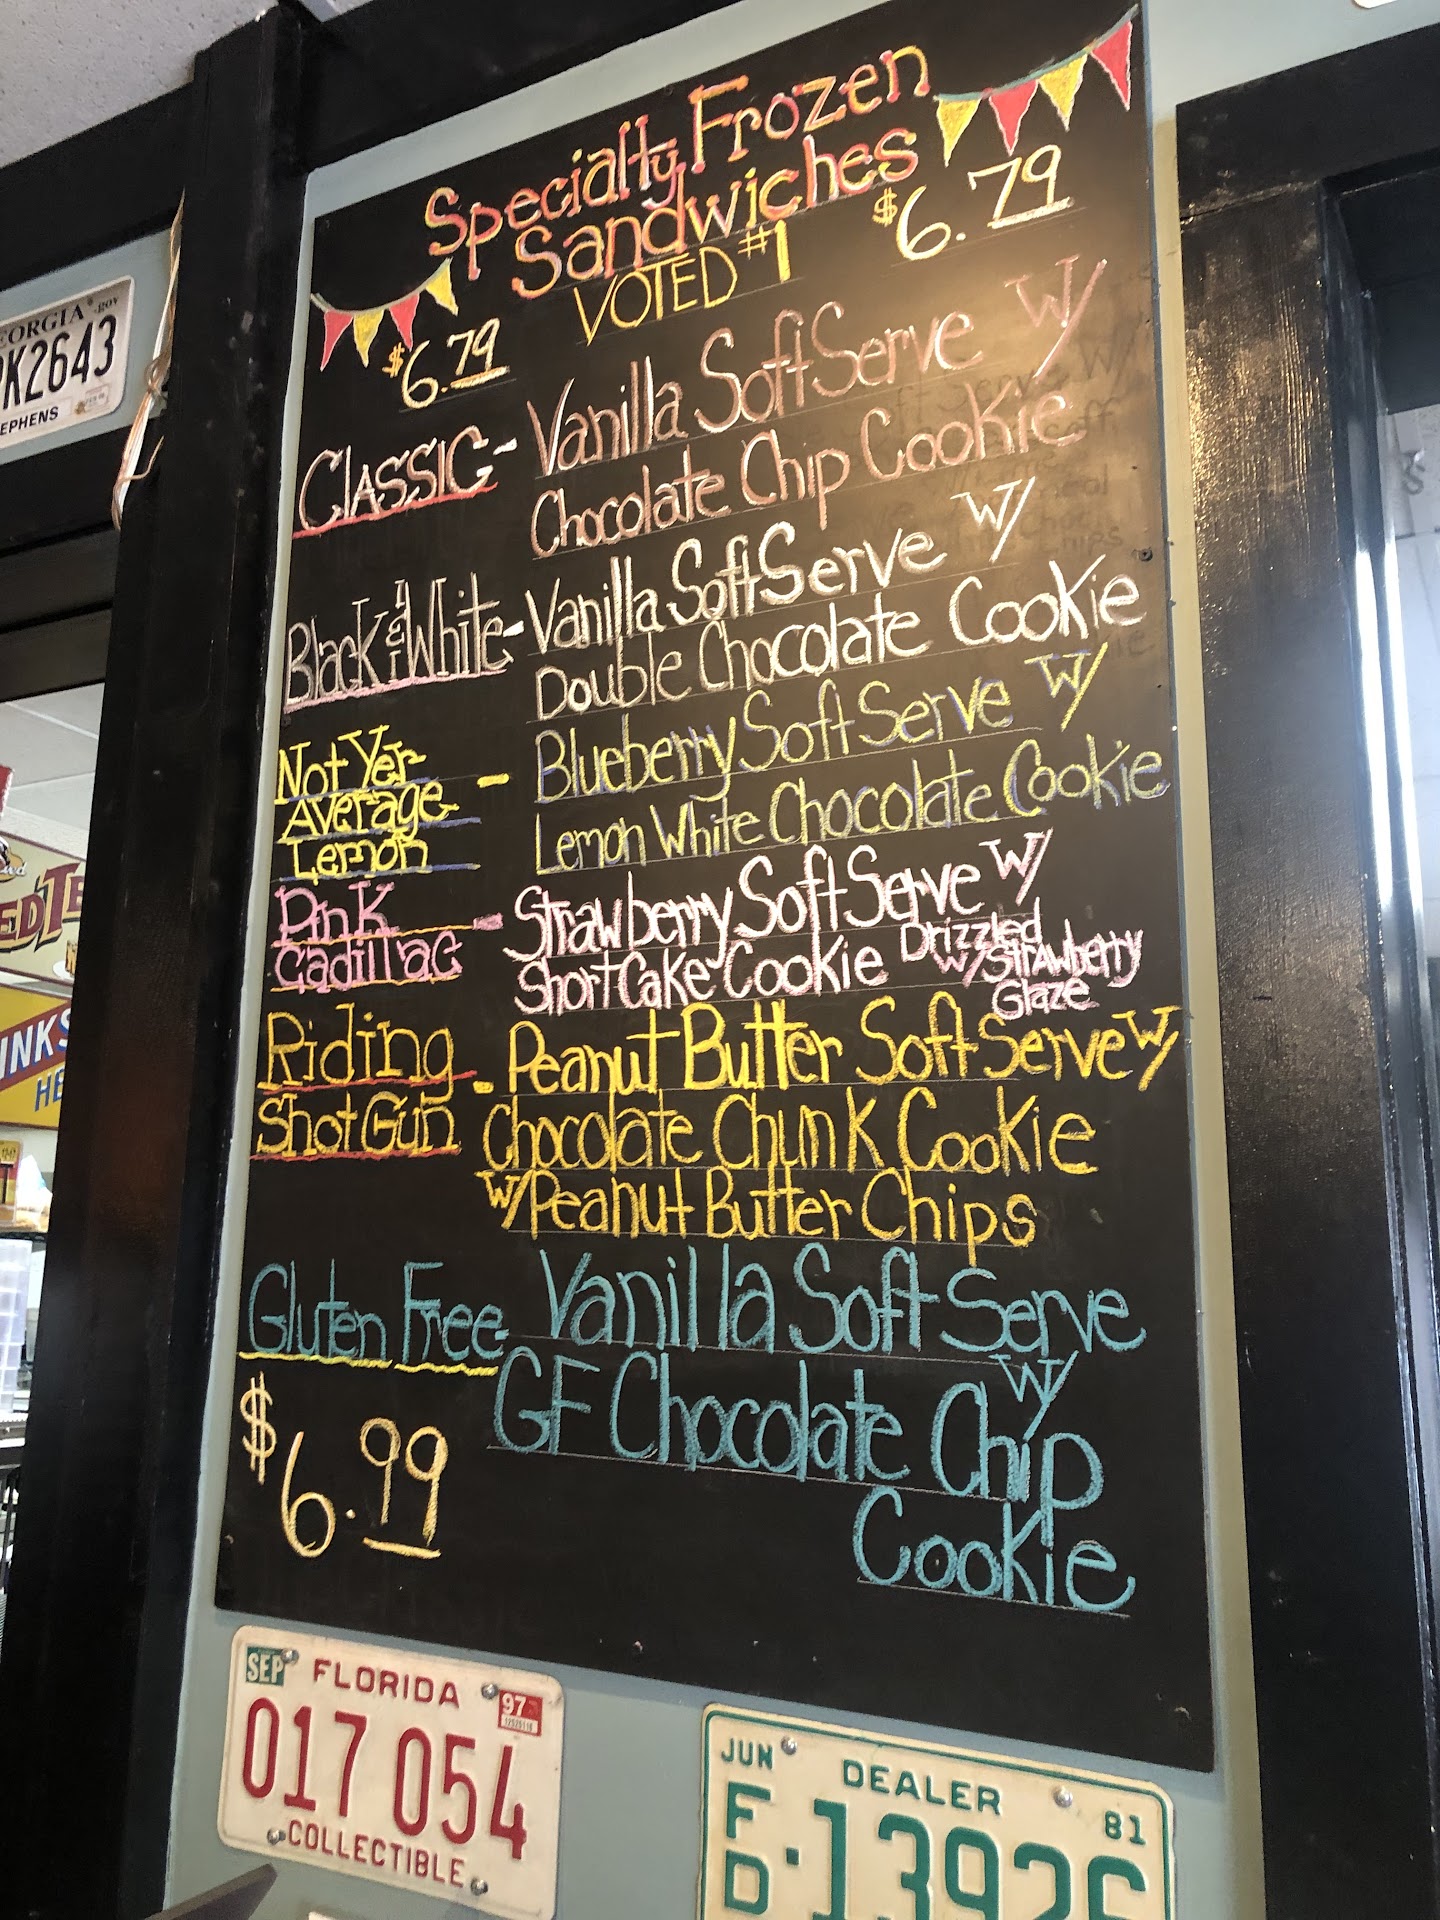 Specialty Frozen
Sandwiches
VOTED #1
$6.79
$6.79
Classic - Vanilla Soft Serve w/
Chocolate Chip Cookie
Black & White - Vanilla Soft Serve w/
Double Chocolate Cookie
Not Yer
Average
Lemon
- Blueberry Soft Serve w/
Lemon White Chocolate Cookie
Pink
Cadillac
- Strawberry Soft Serve w/
ShortCake Cookie Drizzled
w/ Strawberry
Glaze
Riding
ShotGun
- Peanut Butter Soft Serve w/
Chocolate Chunk Cookie
w/ Peanut Butter Chips
Gluten Free - Vanilla Soft Serve
w/
GF Chocolate Chip
Cookie
$6.99
EORGIA
K2643
EPHENS
INKS
HE
SEP FLORIDA 97
017 054
COLLECTIBLE
JUN DEALER 81
FD·1392